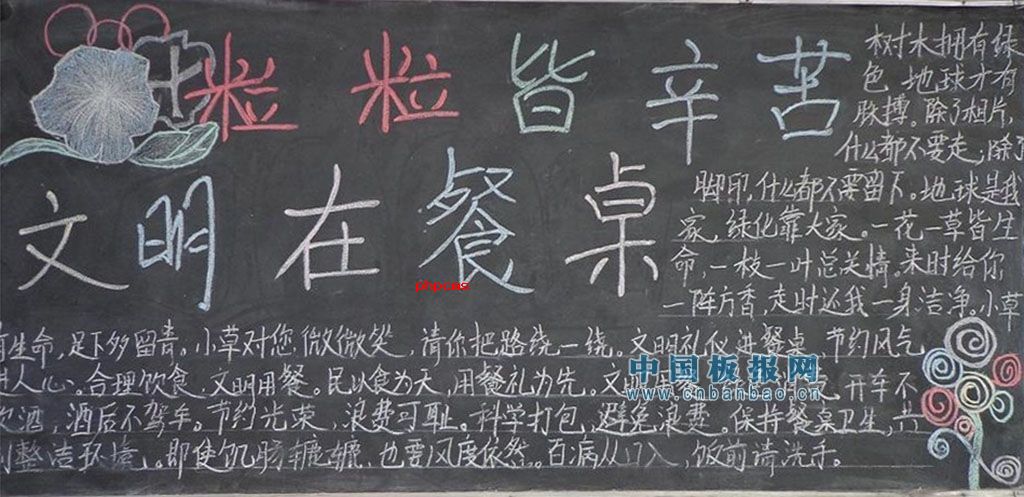 粒粒皆辛苦
文明在餐桌
树木拥有绿
色 地球才有
脉搏。除了相片,
什么都不要走,除了
脚印,什么都不要留下。地球是我
家,绿化靠大家。一花一草皆生
命,一枝一叶总关情。来时给你
一阵方香,走时还我一身洁净。小草
有生命,足下多留青。小草对您微微笑,请你把路绕一绕。文明礼仪进餐桌 节约风气
进人心。合理饮食 文明用餐。民以食为天,用餐礼为先。文明 开车不
饮酒,酒后不驾车。节约光荣,浪费可耻。科学打包,避免浪费。保持餐桌卫生,共
创整洁环境。即使饥肠辘辘,也要风度依然。百病从口入,饭前请洗手。
phpcms
中国板报网
www.cnbanbao.cn